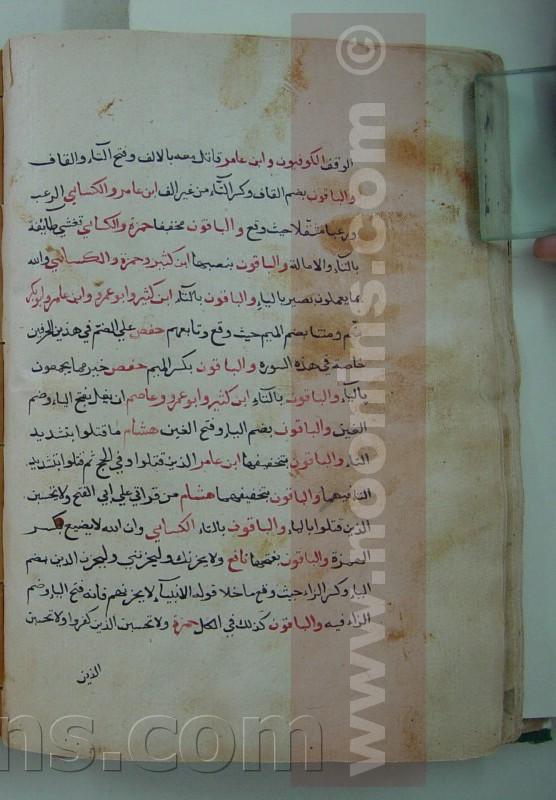 الوقف الكوفيون وابن عامر قاتل معه بالالف وفتح التاء والقاف
والباقون بضم القاف وكسر التاء من غير الف ابن عامر والكسايي الرعب
ورعبا مثقلا حيث وقع والباقون مخففا حمزة والكسايي تغشي طايفة
بالتاء والامالة والباقون بنصبها ابن كثير وحمزة والكسايي والله
بما يعملون بصير بالياء والباقون بالتاء ابن كثير وابو عمرو وابن عامر وابوبكر
متم ومتنا بضم الميم حيث وقع وتابعهم حفص علي الضم في هذين الحرفين
خاصه في هذه السورة والباقون بكسر الميم حفص خير مما يجمعون
بالياء والباقون بالتاء ابن كثير وابو عمرو وعاصم ان يغل بفتح الياء وضم
الغين والباقون بضم الياء وفتح الغين هشام ما قتلوا بتشديد
التاء والباقون بتخفيفها ابن عامر الذين قتلوا وفي الحج ثم قتلوا بتشديد
التاء فيهما والباقون بتخفيفهما هشام من قراتي علي ابي الفتح ولا تحسبن
الذين قتلوا بالياء والباقون بالتاء الكسايي وان الله لا يضيع بكسر
الهمزة والباقون بفتحها نافع ولا يحزنك وليحزنني وليحزن الذين بضم
الياء وكسر الزاء حيث وقع ما خلا قوله الانبياء لا يحزنهم فانه فتح الياء وضم
الزاء فيه والباقون كذلك في الكل حمزة ولا تحسبن الذين كفروا ولا تحسبن
الذين
www.noorlnins.com ©
ns.com